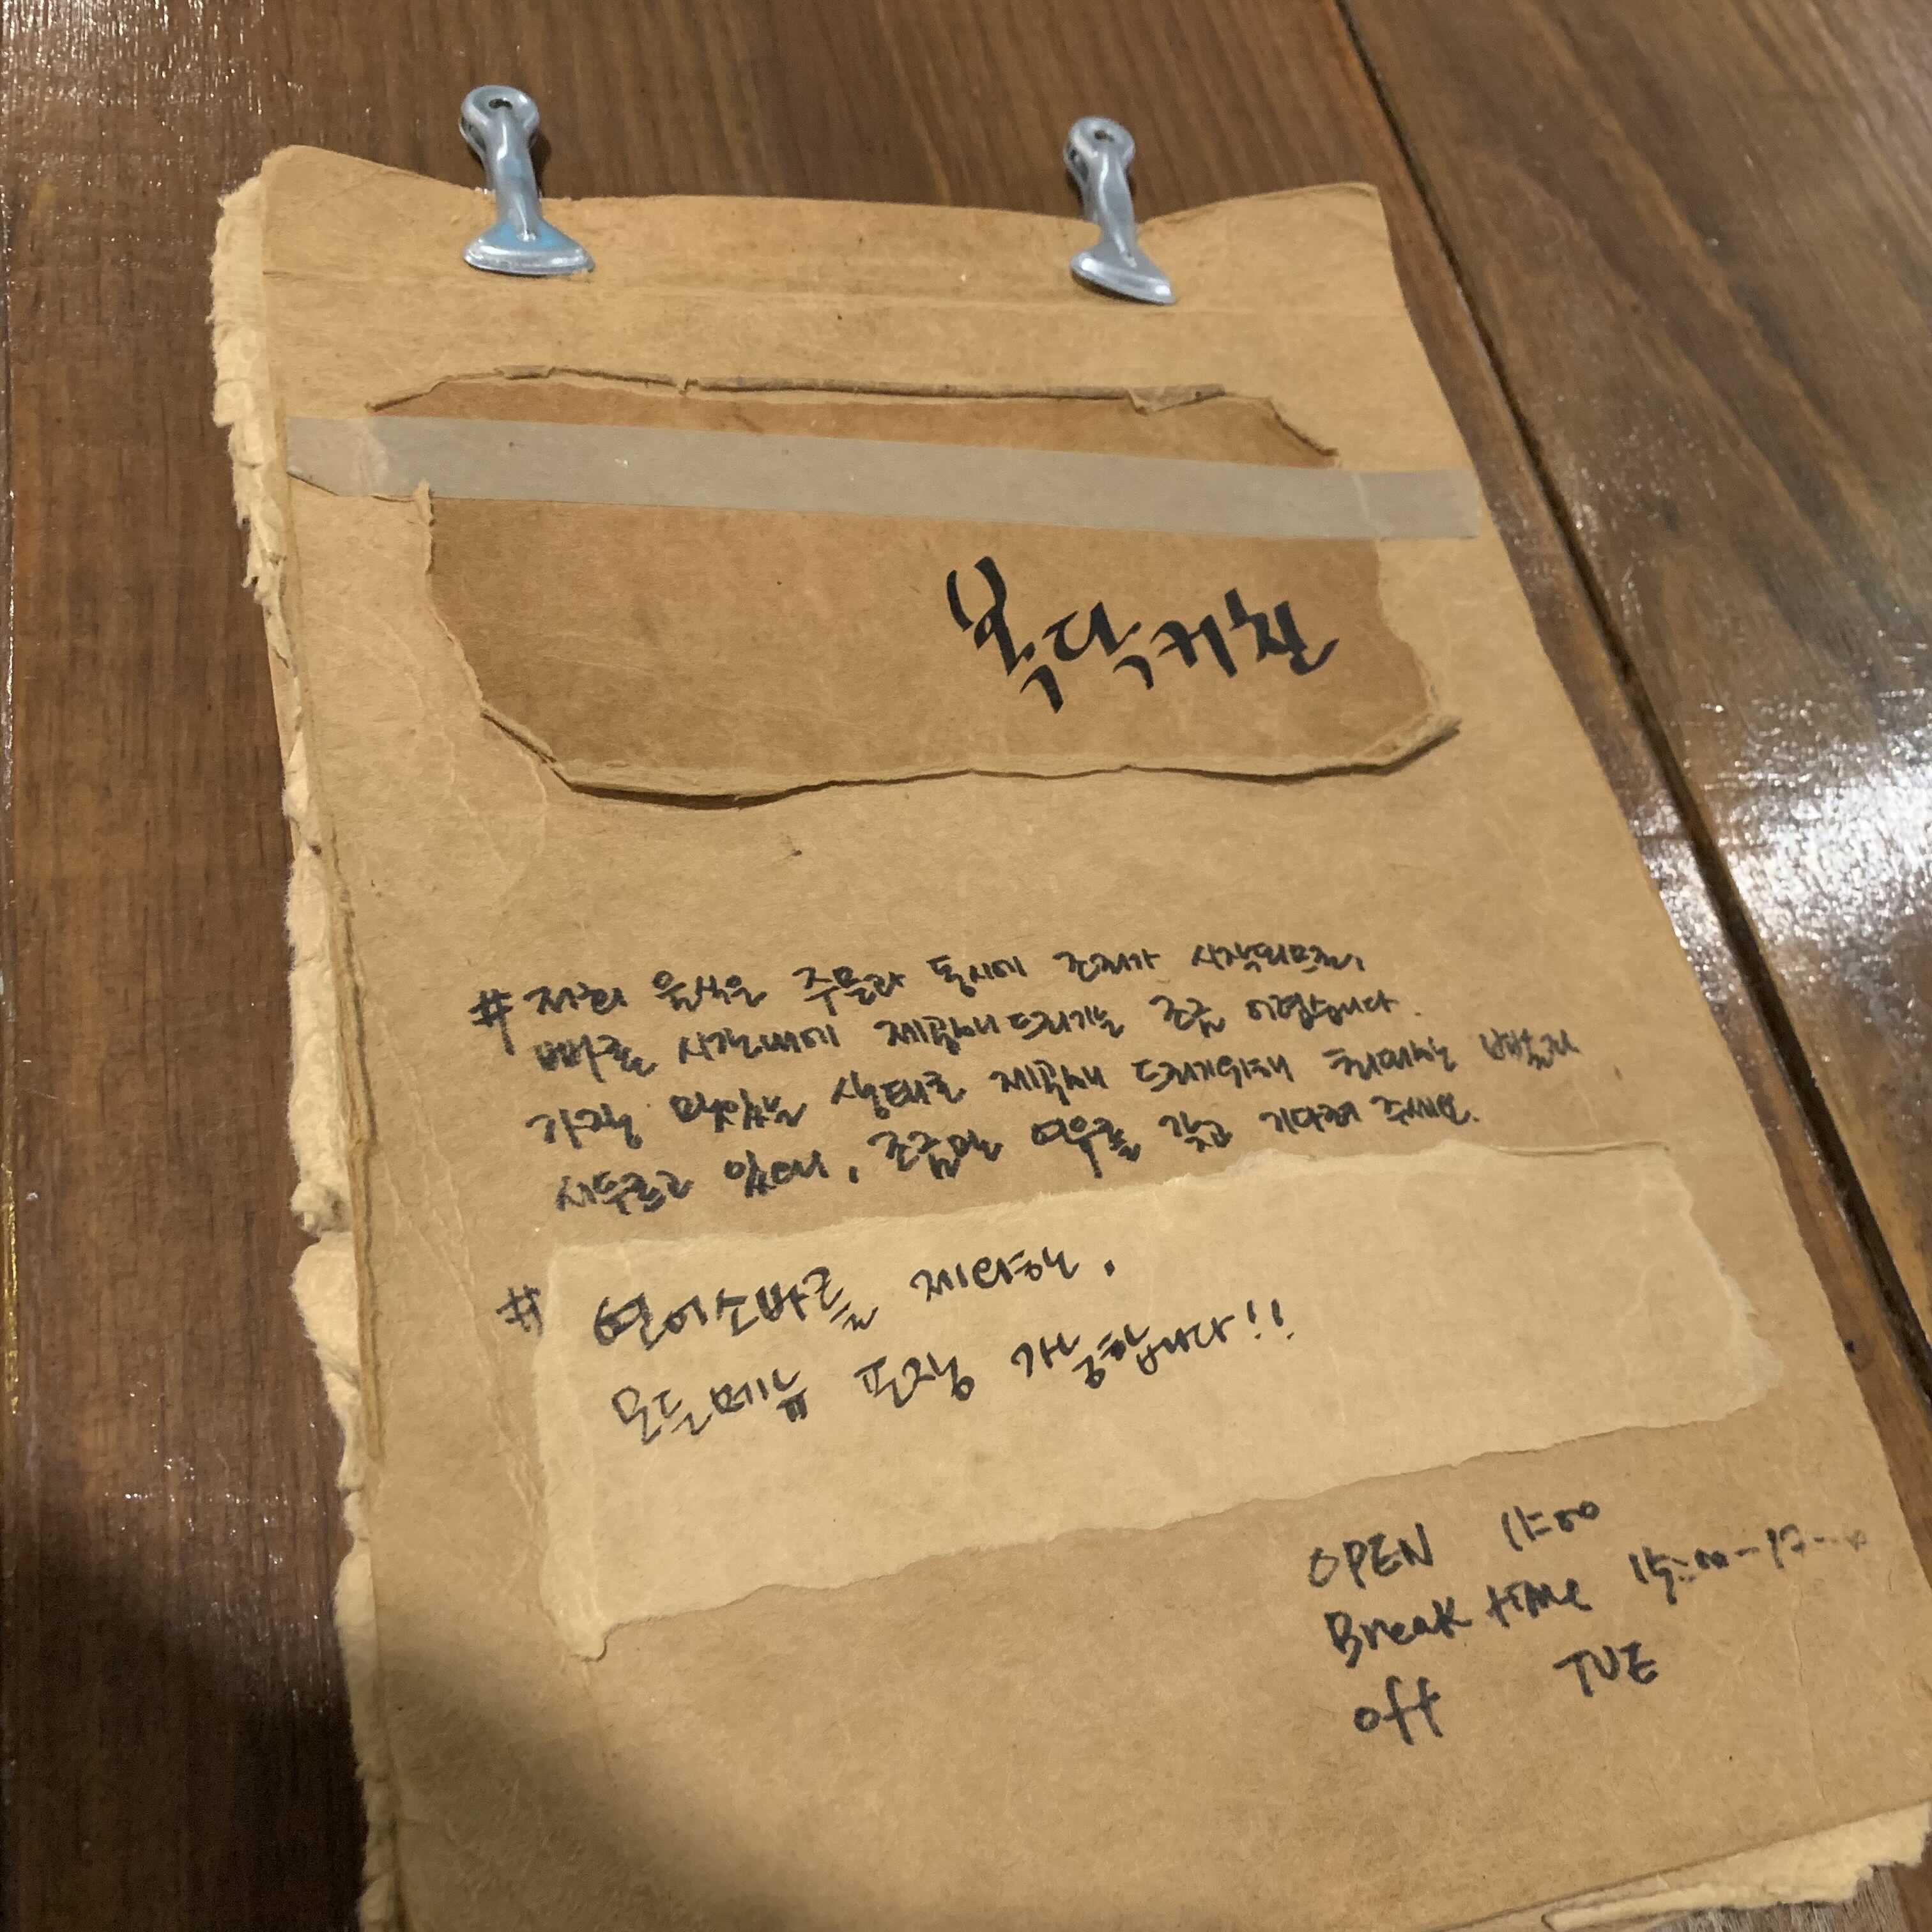 복닥키친
# 저희 음식은 주문과 동시에 조리가 시작되므로,
빠른 시간내에 제공해 드리기는 조금 어렵습니다.
가장 맛있는 상태로 제공해 드리기위해 최대한 빨리
서두르고 있으니, 조금만 여유를 갖고 기다려 주세요.
# 연어소바를 제외한,
모든메뉴 포장 가능합니다!!
OPEN 11:00
Break time 15:00-17:00
off TUE